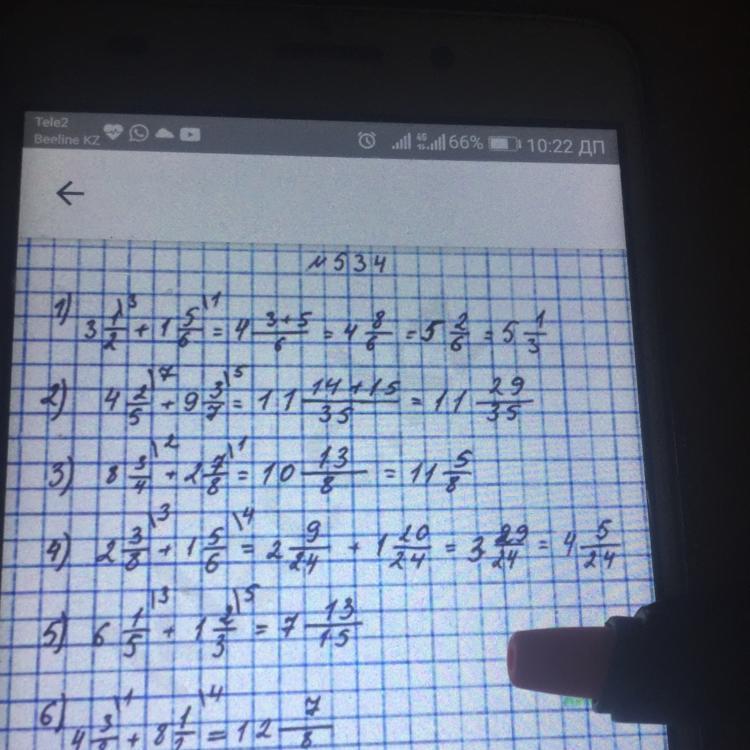 Tele2
Beeline KZ 4G 66% 10:22 ДП
№ 534
1) 3 1/2 \3 + 1 5/6 \1 = 4 3+5/6 = 4 8/6 = 5 2/6 = 5 1/3
2) 4 2/5 \7 + 9 3/7 \5 = 11 14+15/35 = 11 29/35
3) 8 3/4 \2 + 2 7/8 \1 = 10 13/8 = 11 5/8
4) 2 3/8 \3 + 1 5/6 \4 = 2 9/24 + 1 20/24 = 3 29/24 = 4 5/24
5) 6 1/5 \3 + 1 2/3 \5 = 7 13/15
6) 4 3/8 \1 + 8 1/ \4 = 12 7/8